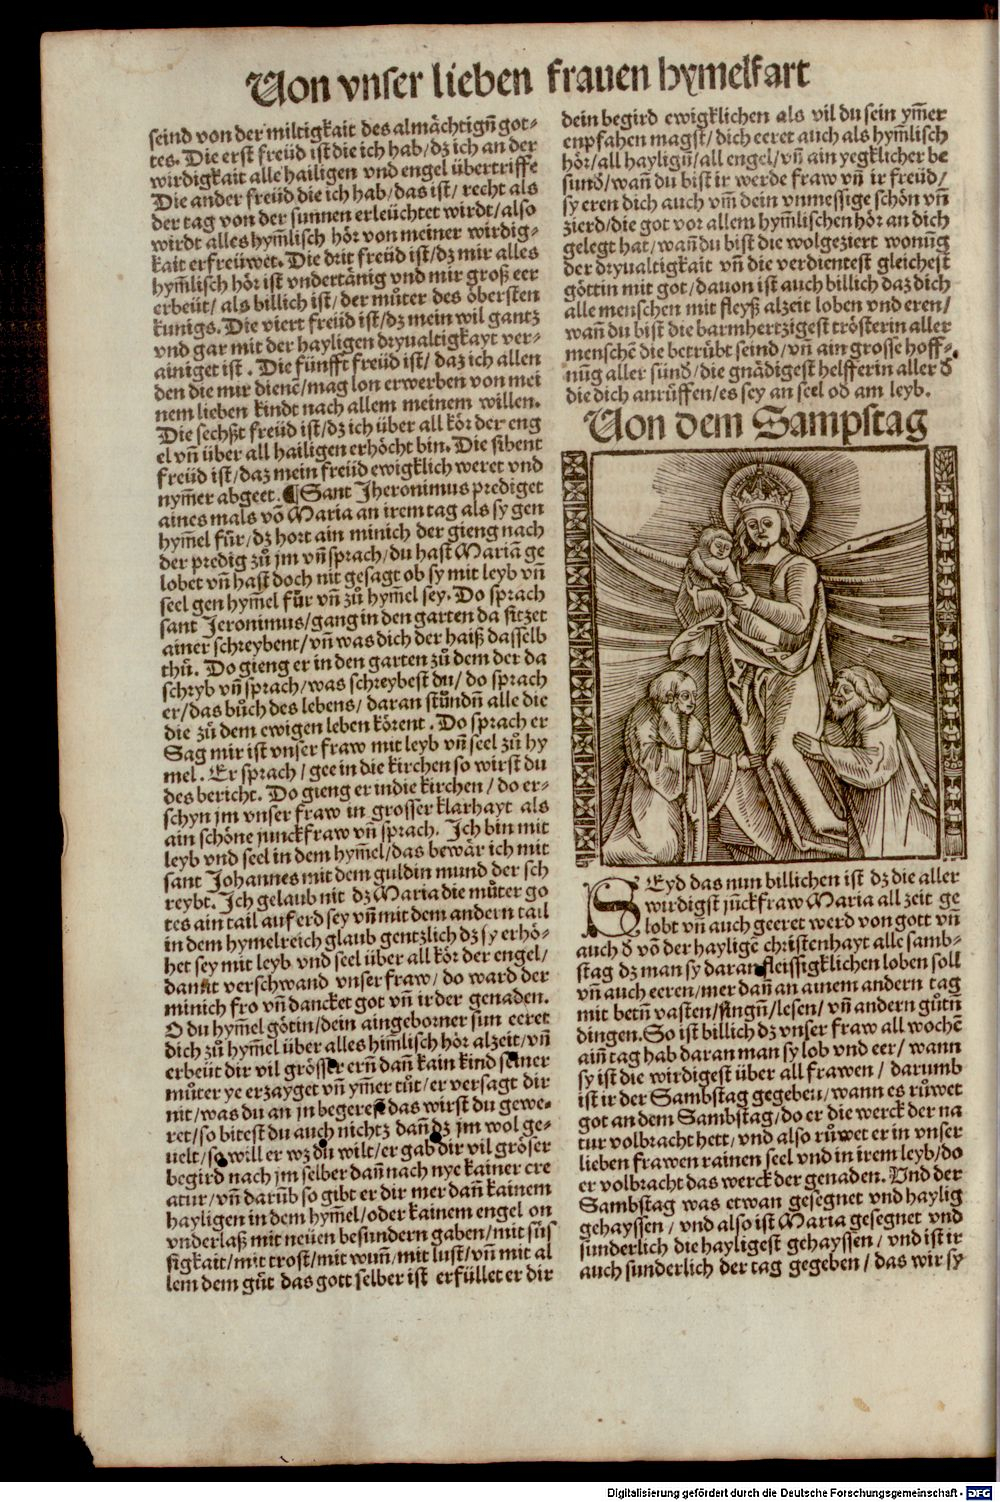 Von vnser lieben frauen hymelfart
seind von der miltigkait des almächtigñ got-
tes. Die erst freüd ist die ich hab/dz ich an der
wirdigkait alle hailigen vnd engel übertriffe
Die ander freüd die ich hab/das ist/ recht als
der tag von der sunnen erleüchtet wirdt/also
wirdt alles hym̃lisch hör von meiner wirdig-
kait erfreüwet. Die drit freüd ist/dz mir alles
hym̃lisch hör ist vndertänig vnd mir groß eer
erbeüt/ als billich ist/der můter des öbersten
kunigs. Die viert freüd ist/dz mein wil gantz
vnd gar mit der hayligen dryualtigkayt ver-
ainiget ist . Die fünfft freüd ist/ daz ich allen
den die mir dienẽ/mag lon erwerben von mei
nem lieben kindt nach allem meinem willen.
Die sechßt freüd ist/dz ich über all kör der eng
el vñ über all hailigen erhöcht bin. Die sibent
freüd ist/daz mein freüd ewigklich weret vnd
nym̃er abgeet. ¶ Sant Jheronimus prediget
aines mals võ Maria an irem tag als sy gen
hym̃el für/dz hort ain minich der gieng nach
der predig zů jm vñ sprach/du hast Mariã ge
lobet vñ hast doch nit gesagt ob sy mit leyb vñ
seel gen hym̃el für vñ zů hym̃el sey. Do sprach
sant Jeronimus/gang in den garten da sitzet
ainer schreybent/vñ was dich der haiß dasselb
thů. Do gieng er in den garten zů dem der da
schryb vñ sprach/was schreybest du/ do sprach
er/das bůch des lebens/ daran stůndñ alle die
die zů dem ewigen leben körent . Do sprach er
Sag mir ist vnser fraw mit leyb vñ seel zů hy
mel . Er sprach / gee in die kirchen so wirst du
des bericht. Do gieng er indie kirchen / do er-
schyn jm vnser fraw in grosser klarhayt als
ain schöne junckfraw vñ sprach. Ich bin mit
leyb vnd seel in dem hym̃el/das bewär ich mit
sant Johannes mit dem guldin mund der sch
reybt. Ich gelaub nit dz Maria die můter go
tes ain tail auf erd sey vñ mit dem andern tail
in dem hymelreich glaub gentzlich dz sy erhö-
het sey mit leyb vnd seel über all kör der engel/
damit verschwand vnser fraw/ do ward der
minich fro vñ dancket got vñ ir der genaden.
O du hym̃el götin/dein aingeborner sun eeret
dich zů hym̃el über alles him̃lisch hör alzeit/vñ
erbeüt dir vil grösser ern̄ dañ kain kind seiner
můter ye erzayget vñ ym̃er tůt/er versagt dir
nit/was du an jn begerest das wirst du gewe-
ret/so bitest du auch nichtz dañ dz jm wol ge-
uelt/so will er wz du wilt/er gab dir vil gröser
begird nach jm selber dañ nach nye kainer cre
atur/vñ darũb so gibt er dir mer dañ kainem
hayligen in dem hym̃el/oder kainem engel on
vnderlaß mit neüen besundern gaben/mit süs
sigkait/mit trost/mit wuñ/mit lust/vñ mit al
lem dem gůt das gott selber ist erfüllet er dir
dein begird ewigklichen als vil du sein ym̃er
enpfahen magst/dich eeret auch als hym̃lisch
hör/all hayligñ/all engel/vñ ain yegklicher be
sund̃/wañ du bist ir werde fraw vñ ir freüd/
sy eren dich auch vm̃ dein vnmessige schön vñ
zierd/die got vor allem hym̃lischen hör an dich
gelegt hat/wañ du bist die wolgeziert wonũg
der dryualtigkait vñ die verdientest gleichest
göttin mit got/dauon ist auch billich daz dich
alle menschen mit fleyß alzeit loben vnd eren/
wañ du bist die barmhertzigest trösterin aller
menschẽ die betrübt seind/vñ ain grosse hoff-
nũg aller sünd̃/die gnädigest helfferin aller d̃
die dich anrüffen/es sey an seel od̃ am leyb.
Von dem Sampstag
SEyd das nun billichen ist dz die aller
wirdigst jũckfraw Maria all zeit ge
lobt vñ auch geeret werd von gott vñ
auch d̃ võ der hayligẽ christenhayt alle samb-
stag dz man sy daran fleissigklichen loben soll
vñ auch eeren/mer dañ an ainem andern tag
mit betñ vasten/singñ/lesen/ vñ andern gůtñ
dingen. So ist billich dz vnser fraw all wochẽ
aiñ tag hab daran man sy lob vnd eer/ wann
sy ist die wirdigest über all frawen / darumb
ist ir der Sambstag gegeben/wann es růwet
got an dem Sambstag/do er die werck der na
tur volbracht hett/vnd also růwet er in vnser
lieben frawen rainen seel vnd in irem leyb/do
er volbracht das werck der genaden. Vnd der
Sambstag was etwan gesegnet vnd haylig
gehayssen / vnd also ist Maria gesegnet vnd
sunderlich die hayligest gehayssen / vnd ist ir
auch sunderlich der tag gegeben / das wir sy
Digitalisierung gefördert durch die Deutsche Forschungsgemeinschaft - DFG